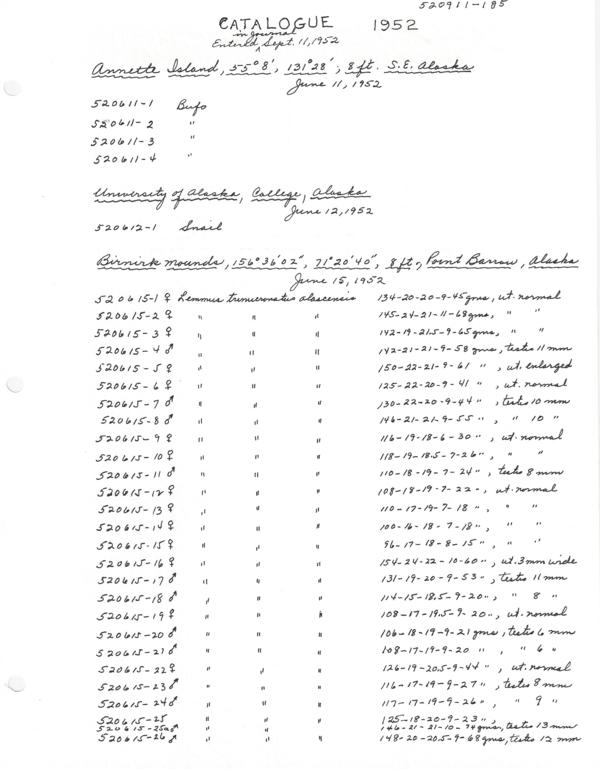 520911-185
CATALOGUE 1952
in journal
Entered Sept. 11, 1952
Annette Island, 55°8', 131°28', 8 ft. S.E. Alaska
June 11, 1952
520611-1 Bufo
520611-2 "
520611-3 "
520611-4 "
University of Alaska, College, Alaska
June 12, 1952
520612-1 Snail
Birnirk mounds, 156°36'02", 71°20'40", 8 ft, Point Barrow, Alaska
June 15, 1952
520615-1 ♀ Lemmus trimucronatus alascensis 134-20-20-9-45 gms, ut. normal
520615-2 ♀ " " " 145-24-21-11-68 gms, " "
520615-3 ♀ " " " 142-19-21.5-9-65 gms, " "
520615-4 ♂ " " " 142-21-21-9-58 gms, testes 11 mm
520615-5 ♀ " " " 150-22-21-9-61 ", ut. enlarged
520615-6 ♀ " " " 125-22-20-9-41 ", ut. normal
520615-7 ♂ " " " 130-22-20-9-44 ", testes 10 mm
520615-8 ♂ " " " 146-21-21-9-55 ", " 10 "
520615-9 ♀ " " " 116-19-18-6-30 ", ut. normal
520615-10 ♀ " " " 118-19-18.5-7-26 ", " "
520615-11 ♂ " " " 110-18-19-7-24 ", testes 8 mm
520615-12 ♀ " " " 108-18-19-7-22 -, ut. normal
520615-13 ♀ " " " 110-17-19-7-18 ", " "
520615-14 ♀ " " " 100-16-18-7-18 ", " "
520615-15 ♀ " " " 96-17-18-8-15 ", " "
520615-16 ♀ " " " 154-24-22-10-60 ", ut. 3 mm wide
520615-17 ♂ " " " 131-19-20-9-53 ", testes 11 mm
520615-18 ♂ " " " 114-15-18.5-9-20 ", " 8 "
520615-19 ♀ " " " 108-17-19.5-9-20 ", ut. normal
520615-20 ♂ " " " 106-18-19-9-21 gms, testes 6 mm
520615-21 ♂ " " " 108-17-19-9-20 ", " 6 "
520615-22 ♀ " " " 126-19-20.5-9-44 ", ut. normal
520615-23 ♂ " " " 116-17-19-9-27 ", testes 8 mm
520615-24 ♂ " " " 117-17-19-9-26 ", " 9 "
520615-25 " " " 125-18-20-9-23 ",
520615-25a ♂ " " " 146-21-21-10-74 gms, testes 13 mm
520615-26 ♂ " " " 148-20-20.5-9-68 gms, testes 12 mm